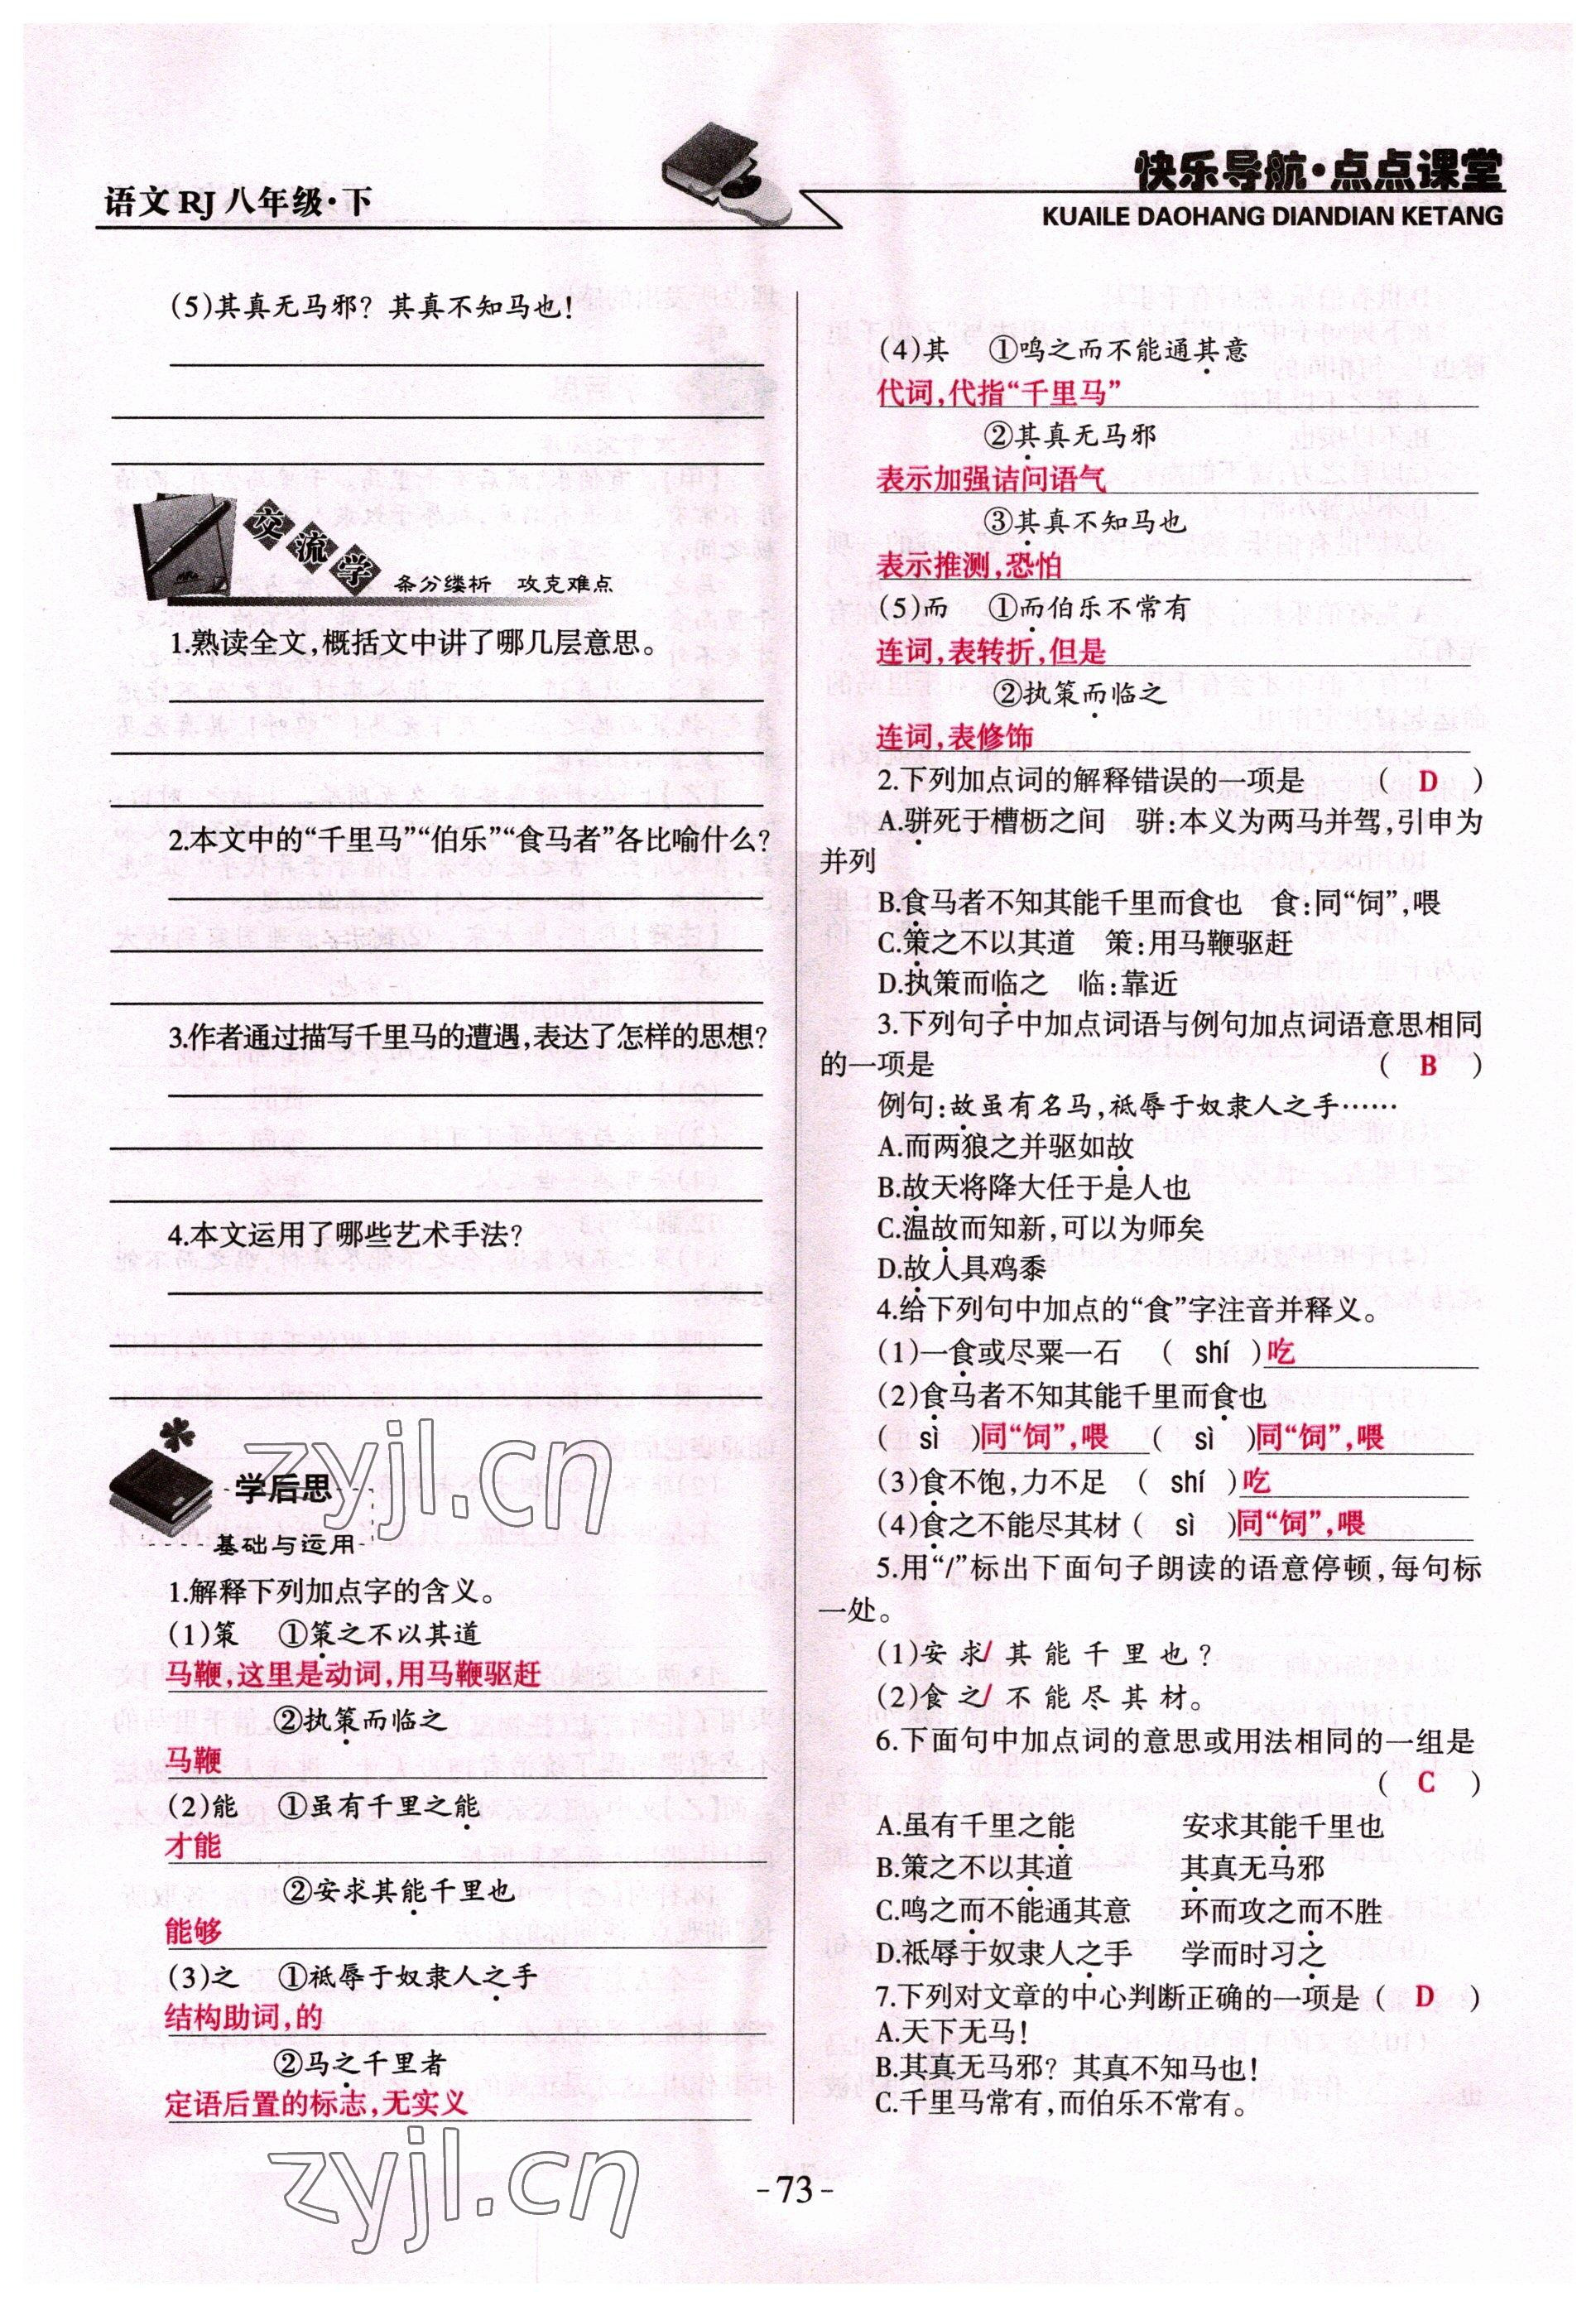 语文RJ八年级·下
快乐导航·点点课堂
KUAILE DAOHANG DIANDIAN KETANG
(5)其真无马邪？其真不知马也！
交流学
条分缕析 攻克难点
1.熟读全文,概括文中讲了哪几层意思。
2.本文中的“千里马”“伯乐”“食马者”各比喻什么？
3.作者通过描写千里马的遭遇,表达了怎样的思想？
4.本文运用了哪些艺术手法？
zyjl.cn
学后思
基础与运用
1.解释下列加点字的含义。
(1)策 ①策之不以其道
马鞭,这里是动词,用马鞭驱赶
②执策而临之
马鞭
(2)能 ①虽有千里之能
才能
②安求其能千里也
能够
(3)之 ①祗辱于奴隶人之手
结构助词,的
②马之千里者
定语后置的标志,无实义
zyjl.cn
(4)其 ①鸣之而不能通其意
代词,代指“千里马”
②其真无马邪
表示加强诘问语气
③其真不知马也
表示推测,恐怕
(5)而 ①而伯乐不常有
连词,表转折,但是
②执策而临之
连词,表修饰
2.下列加点词的解释错误的一项是 ( D )
A.骈死于槽枥之间 骈:本义为两马并驾,引申为
并列
B.食马者不知其能千里而食也 食:同“饲”,喂
C.策之不以其道 策:用马鞭驱赶
D.执策而临之 临:靠近
3.下列句子中加点词语与例句加点词语意思相同
的一项是 ( B )
例句:故虽有名马,祗辱于奴隶人之手……
A.而两狼之并驱如故
B.故天将降大任于是人也
C.温故而知新,可以为师矣
D.故人具鸡黍
4.给下列句中加点的“食”字注音并释义。
(1)一食或尽粟一石 ( shí )吃
(2)食马者不知其能千里而食也
( sì )同“饲”,喂 ( sì )同“饲”,喂
(3)食不饱,力不足 ( shí )吃
(4)食之不能尽其材 ( sì )同“饲”,喂
5.用“/”标出下面句子朗读的语意停顿,每句标
一处。
(1)安求/其能千里也？
(2)食之/不能尽其材。
6.下面句中加点词的意思或用法相同的一组是
( C )
A.虽有千里之能 安求其能千里也
B.策之不以其道 其真无马邪
C.鸣之而不能通其意 环而攻之而不胜
D.祗辱于奴隶人之手 学而时习之
7.下列对文章的中心判断正确的一项是 ( D )
A.天下无马！
B.其真无马邪？其真不知马也！
C.千里马常有,而伯乐不常有。
- 73 -